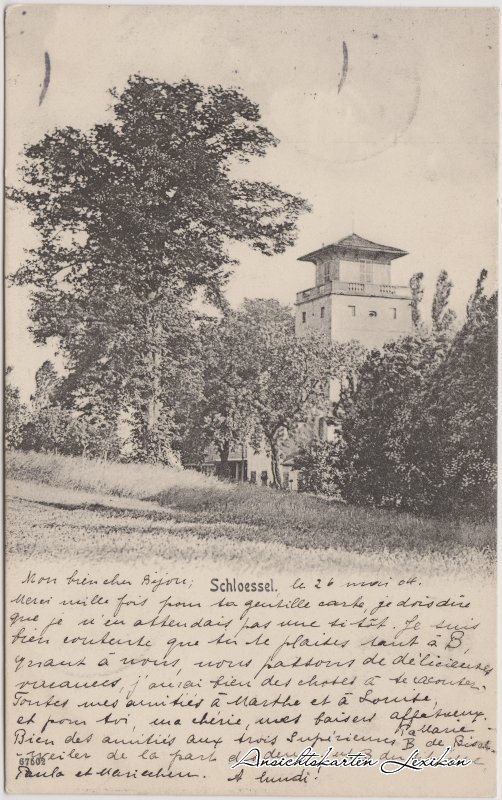 Mon bien cher Bijou; Schloessel. le 26 mai 04.
Merci mille fois pour ta gentille carte, je dois dire
que je n'en attendais pas une si tôt. Je suis
bien contente que tu te plaises tant à B,
quant à nous, nous passons de délicieuses
vacances, j'aurai bien des choses à te raconter.
Toutes mes amitiés à Marthe et à Louise,
et pour toi, ma chérie, mes baisers affectueux.
Ta Marie
Bien des amitiés aux trois Supérieures B de
weiler de la part
Paula et Mariechen. A lundi!
67602
Ansichtskarten Lexikon